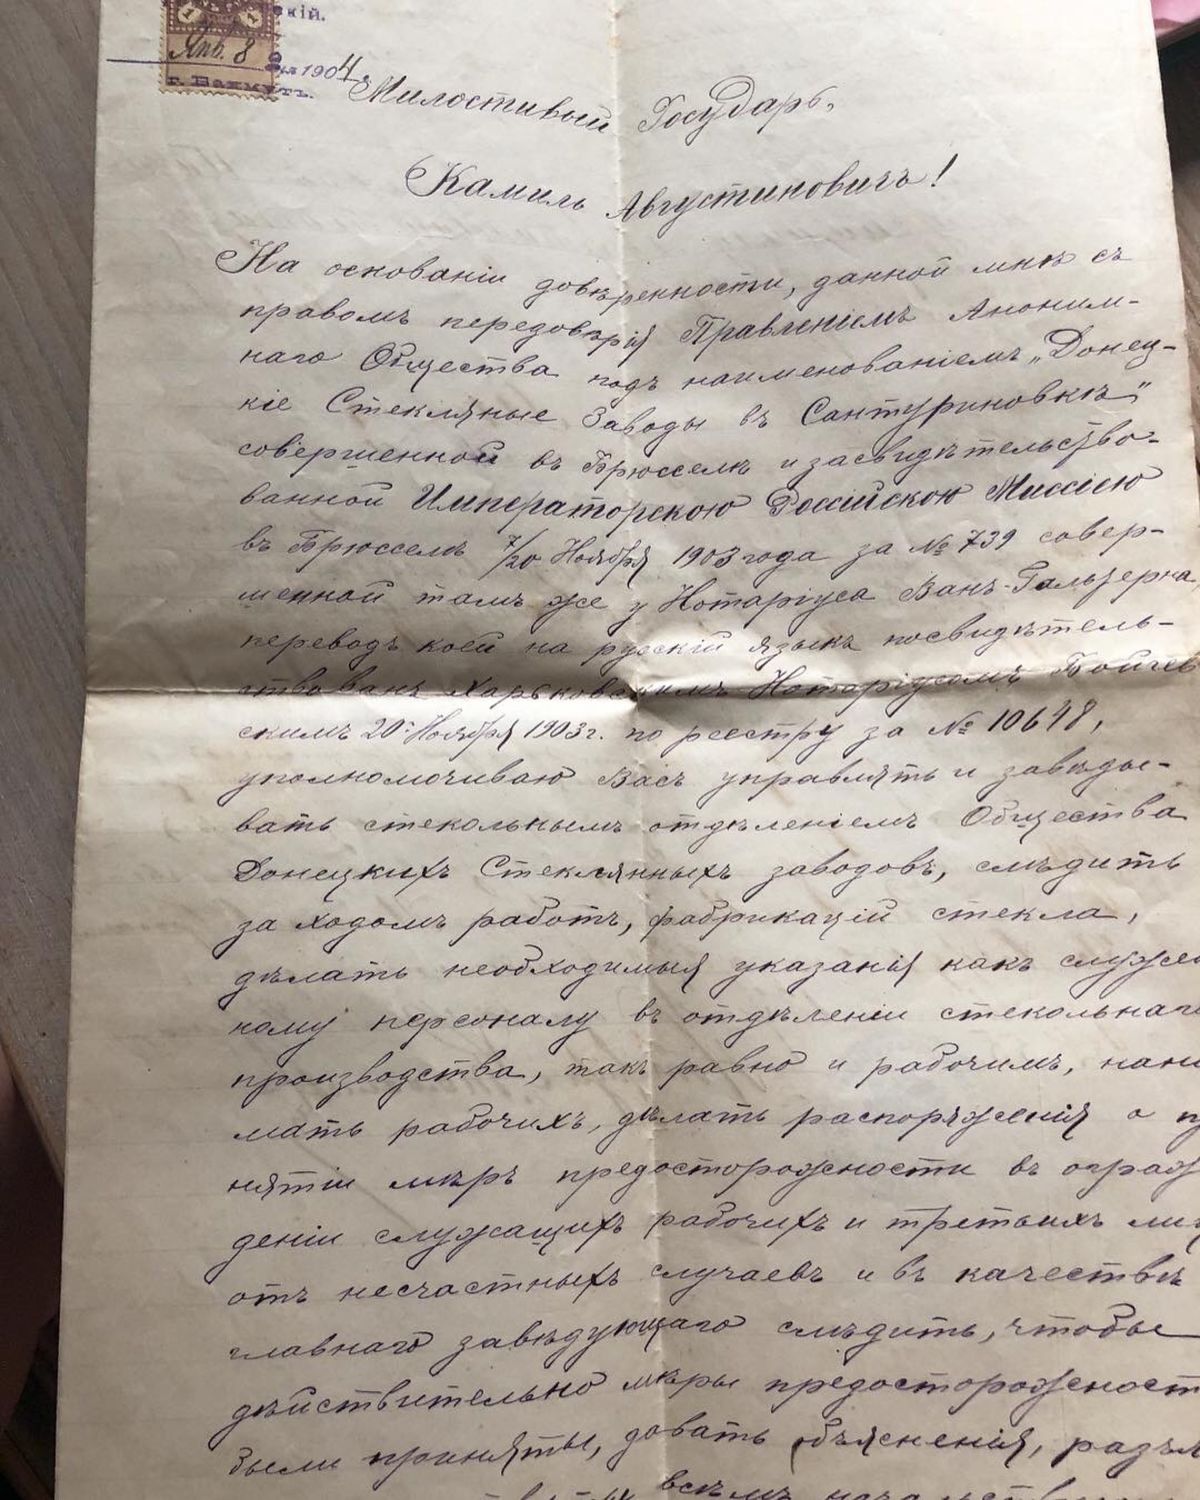 скій.
1 1
Янв. 8 дня 1904 г.
г. Бахмутъ.
Милостивый Государь,
Камиль Августиновичъ!
На основаніи довѣренности, данной мнѣ съ
правомъ передовѣрія Правленіемъ Аноним-
наго Общества подъ наименованіемъ „Донец-
кіе Стекляные Заводы въ Сантуриновкѣ"
совершенной въ Брюсселѣ и засвидѣтельство-
ванной Императорскою Россійскою Миссіею
въ Брюсселѣ 7/20 Ноября 1903 года за № 739 совер-
шенной тамъ же у Нотаріуса Ванъ-Гальтерна,
переводъ коей на русскій языкъ посвидѣтель-
ствованъ Харьковскимъ Нотаріусомъ Бойчев
скимъ 20 Ноября 1903 г. по реестру за № 10648,
уполномочиваю Васъ управлять и завѣды-
вать стекольнымъ отдѣленіемъ Общества
Донецкихъ Стеклянныхъ заводовъ, слѣдить
за ходомъ работъ, фабрикацій стекла,
дѣлать необходимыя указанія какъ служеб
ному персоналу въ отдѣленіи стекольнаго
производства, такъ равно и рабочимъ, нани
мать рабочихъ, дѣлать распоряженія о пр
нятіи мѣръ предосторожности въ ограж
деніи служащихъ рабочихъ и третьихъ лиц
отъ несчастныхъ случаевъ и въ качествѣ
главнаго завѣдующаго слѣдить, чтобы
дѣйствительно мѣры предосторожност
были приняты, давать объясненія, разъя
всѣмъ